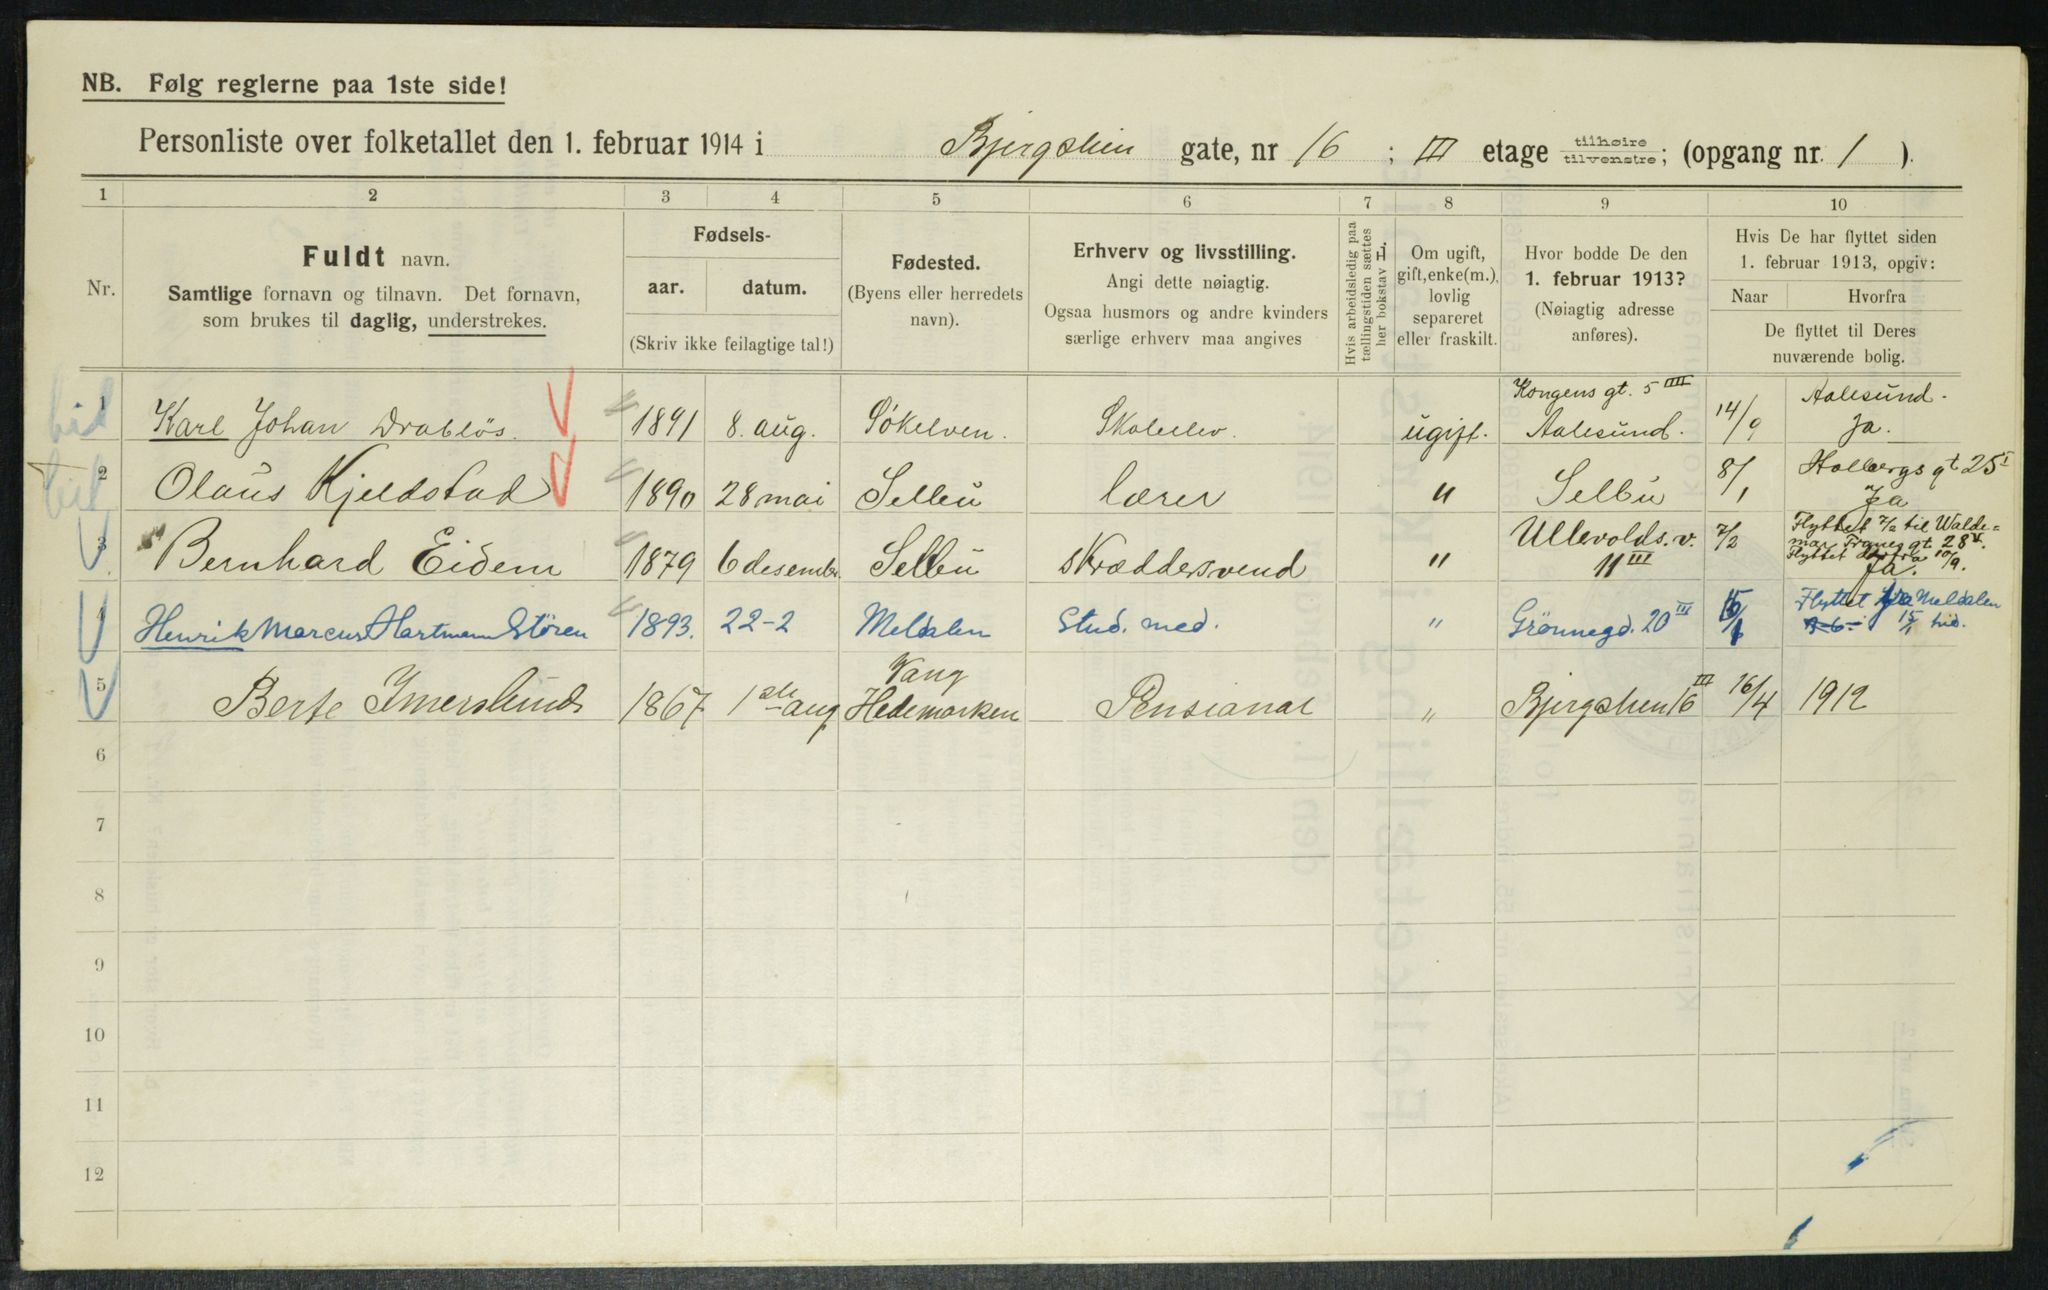 NB. Følg reglerne paa 1ste side!
Personliste over folketallet den 1. februar 1914 i Bjergstien gate, nr 16 ; III etage tilhøire tilvenstre; (opgang nr. 1 ).
1 2 3 4 5 6 7 8 9 10
Nr.
Fuldt navn.
Samtlige fornavn og tilnavn. Det fornavn,
som brukes til daglig, understrekes.
Fødsels-
aar. datum.
(Skriv ikke feilagtige tal!)
Fødested.
(Byens eller herredets
navn).
Erhverv og livsstilling.
Angi dette nøiagtig.
Ogsaa husmors og andre kvinders
særlige erhverv maa angives
Hvis arbeidsledig paa
tællingstiden sættes
her bokstav l
Om ugift,
gift, enke(m.),
lovlig
separeret
eller fraskilt.
Hvor bodde De den
1. februar 1913?
(Nøiagtig adresse
anføres).
Hvis De har flyttet siden
1. februar 1913, opgiv:
Naar Hvorfra
De flyttet til Deres
nuværende bolig.
Kongens gt. 5 IIII Aalesund.
1 Karl Johan Drabløs. 1891 8. aug. Søkelven. Skoleelev. ugift. Aalesund. 14/9 Ja.
2 Olaus Kjeldstad 1890 28 mai Selbu lærer " Selbu 8/1 Holbergs gt. 25 I
Ja
3 Bernhard Eidem 1879 6 desembr. Selbu skræddersvend " Ullevolds. v. 11 III 7/2 Flyttet 7/2 til Walde=
mar Tranes gt. 28 V.
Flyttet derfra 10/9.
Ja.
4 Henrik Marcus Hartmann Stören 1893. 22-2 Meldalen Stud. med. " Grönnegd. 20 III Flyttet fra Meldalen
15/1 hid.
Vang
5 Berte Imerslund 1867 1ste aug Hedemarken Pensianat " Bjergstien 16 III 16/4 1912
6
7
8
9
10
11
12